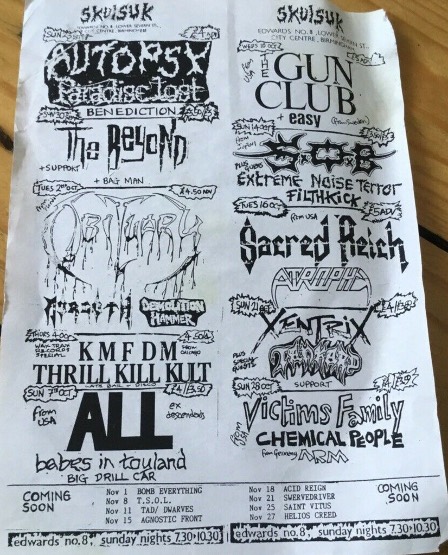 SKULSUK
EDWARDS NO.8, LOWER SEVERN ST.,
CITY CENTRE, BIRMINGHAM
AUTOPSY
Paradise Lost
BENEDICTION
SUN 30
The Beyond
+ SUPPORT
+ BAG MAN
TUES 2nd OCT
£4.50 ADV
OBITUARY
Gorguts
DEMOLITION
HAMMER
THURS 4 OCT
WAX TRAX
RECORDS
SPECIAL
from
CHICAGO
KMFDM
THRILL KILL KULT
SUN 7th OCT
£4/3.50
from
USA
ALL
ex
descendents
babes in toyland
BIG DRILL CAR
SKULSUK
EDWARDS NO.8, LOWER SEVERN ST.,
CITY CENTRE, BIRMINGHAM
WEDS 10 OCT
THE
GUN
CLUB
+ easy
(from Sweden)
SUN 14 OCT
from Japan
S.O.B
PLUS
GUESTS
EXTREME NOISE TERROR
FILTHKICK
TUES 16 OCT
from USA
£5 ADV
Sacred Reich
ATROPHY
SUN 21 OCT
£4/
XENTRIX
PLUS
GUESTS
TANKARD
SUPPORT
SUN 28 OCT
from USA
Victims Family
CHEMICAL PEOPLE
from Germany
ARM
COMING
SOON
Nov 1 BOMB EVERYTHING
Nov 8 T.S.O.L.
Nov 11 TAD/ DWARVES
Nov 15 AGNOSTIC FRONT
Nov 18 ACID REIGN
Nov 21 SWERVEDRIVER
Nov 25 SAINT VITUS
Nov 27 HELIOS CREED
COMING
SOON
edwards no.8, sunday nights 7.30>10.30
edwards no.8, sunday nights 7.30>10.30